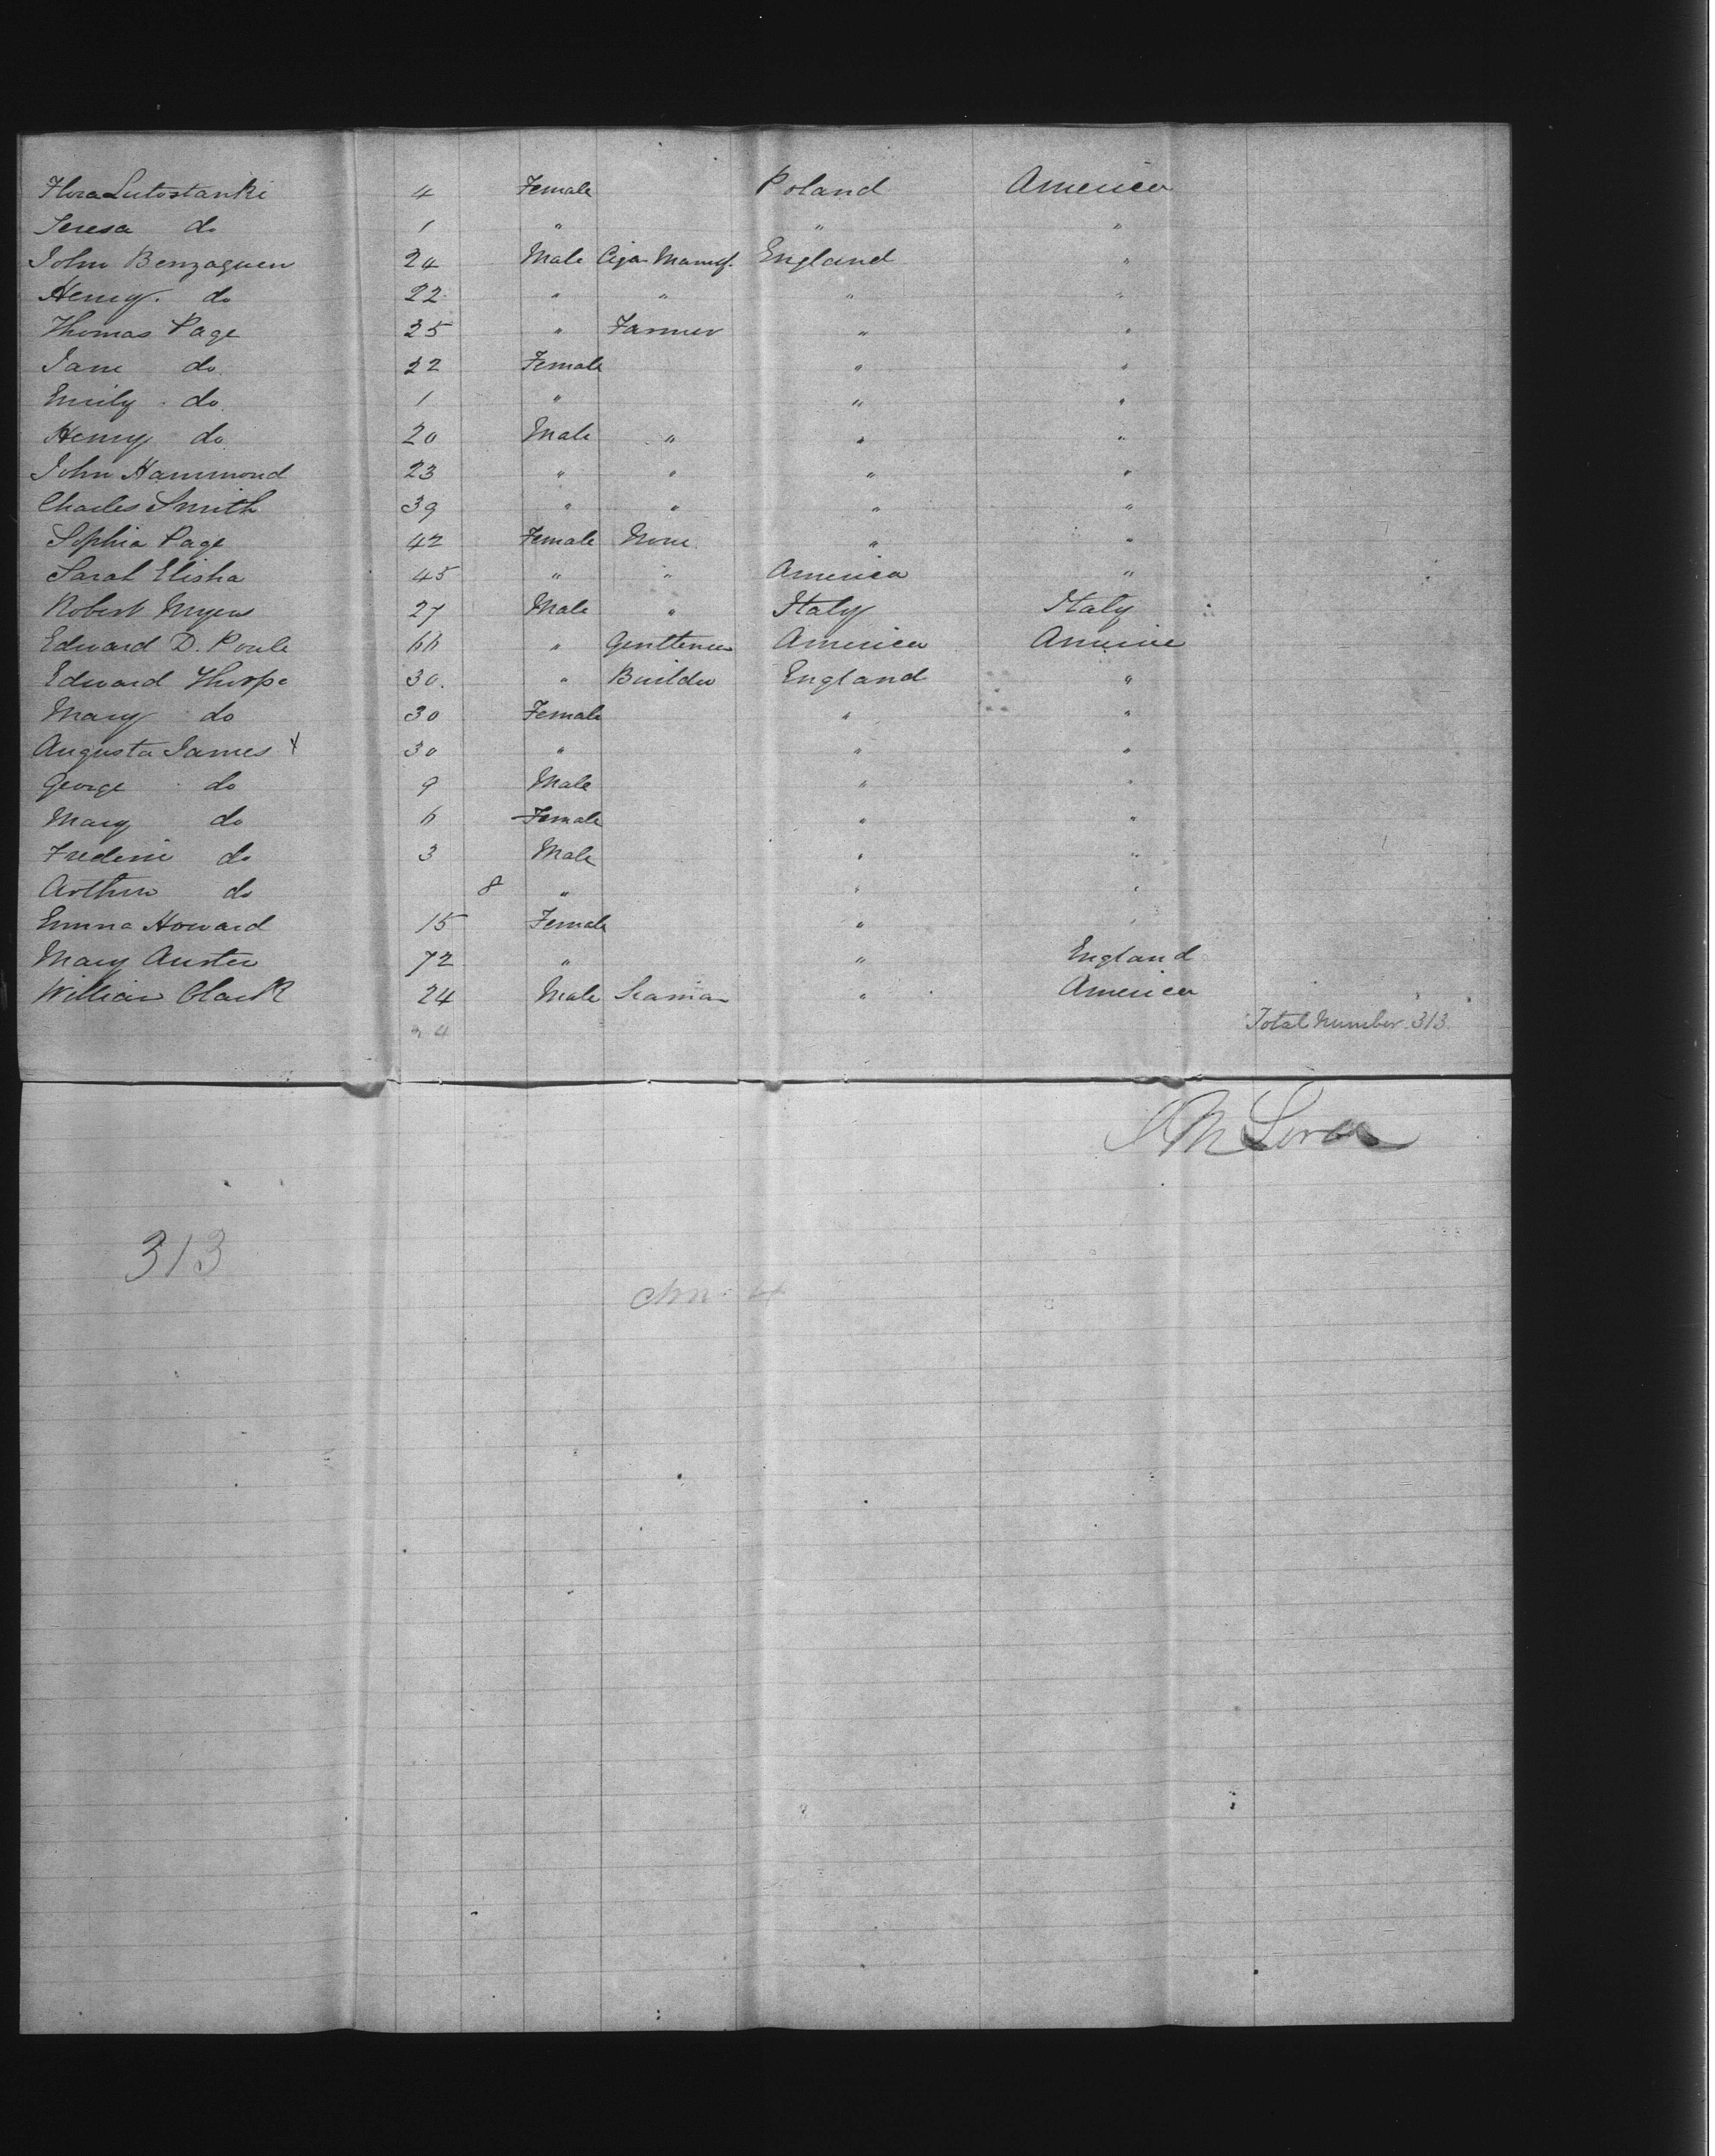 Flora Lutostanki 4 Female Poland America
Teresa do 1 " " "
John Benzaquen 24 Male Cigar Manuf. England "
Henry. do 22 " " " "
Thomas Page 25 " Farmer " "
Jane do. 22 Female " "
Emily do. 1 " " "
Henry do 20 Male " " "
John Hammond 23 " " " "
Charles Smith 39 " " " "
Sophia Page 42 Female None " "
Sarah Elisha 45 " " America "
Robert Myers 27 Male " Italy Italy
Edward D. Poule 66 " Gentleman America America
Edward Thorpe 30. " Builder England "
Mary do 30 Female " "
Augusta James x 30 " " "
George do 9 Male " "
Mary do 6 Female " "
Frederic do 3 Male " "
Arthur do 8 " " "
Emma Howard 15 Female " "
Mary Auster 72 " " England
William Clark 24 Male Seaman " America
24 Total Number. 313.
313